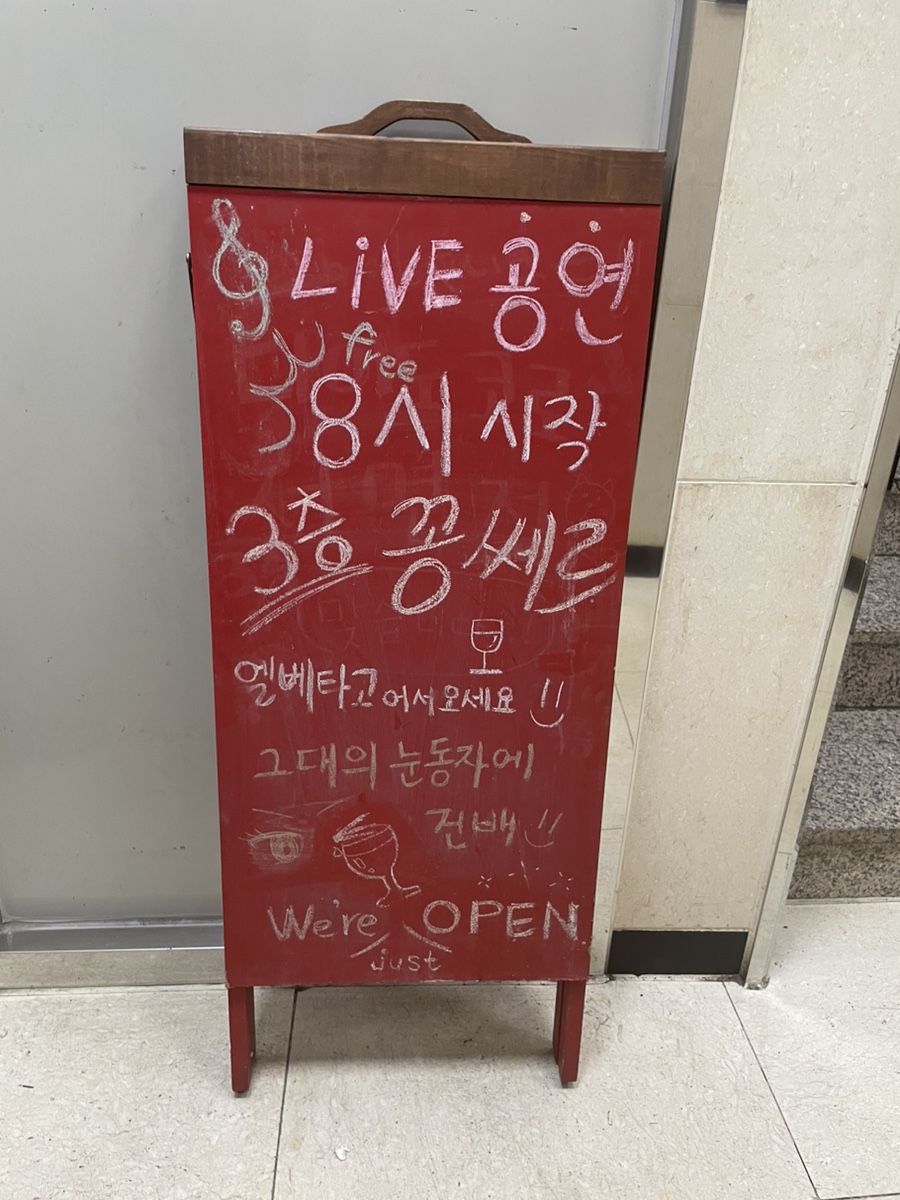 LiVE 공연
free
8시 시작
3층 꽁쎄르
엘베타고 어서오세요
그대의 눈동자에
건배
We're OPEN
just